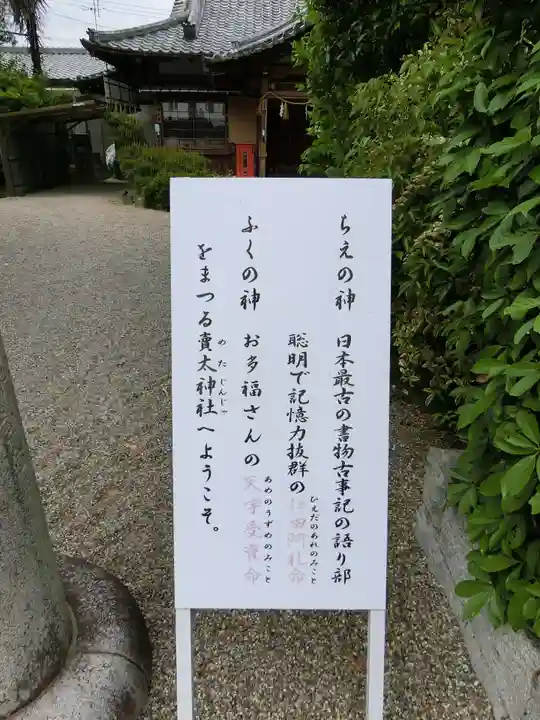 ちえの神　日本最古の書物古事記の語り部
聡明で記憶力抜群の稗田阿礼命
ひえだのあれのみこと
ふくの神　お多福さんの天宇受賣命
あめのうずめのみこと
をまつる賣太神社へようこそ。
めたじんじゃ